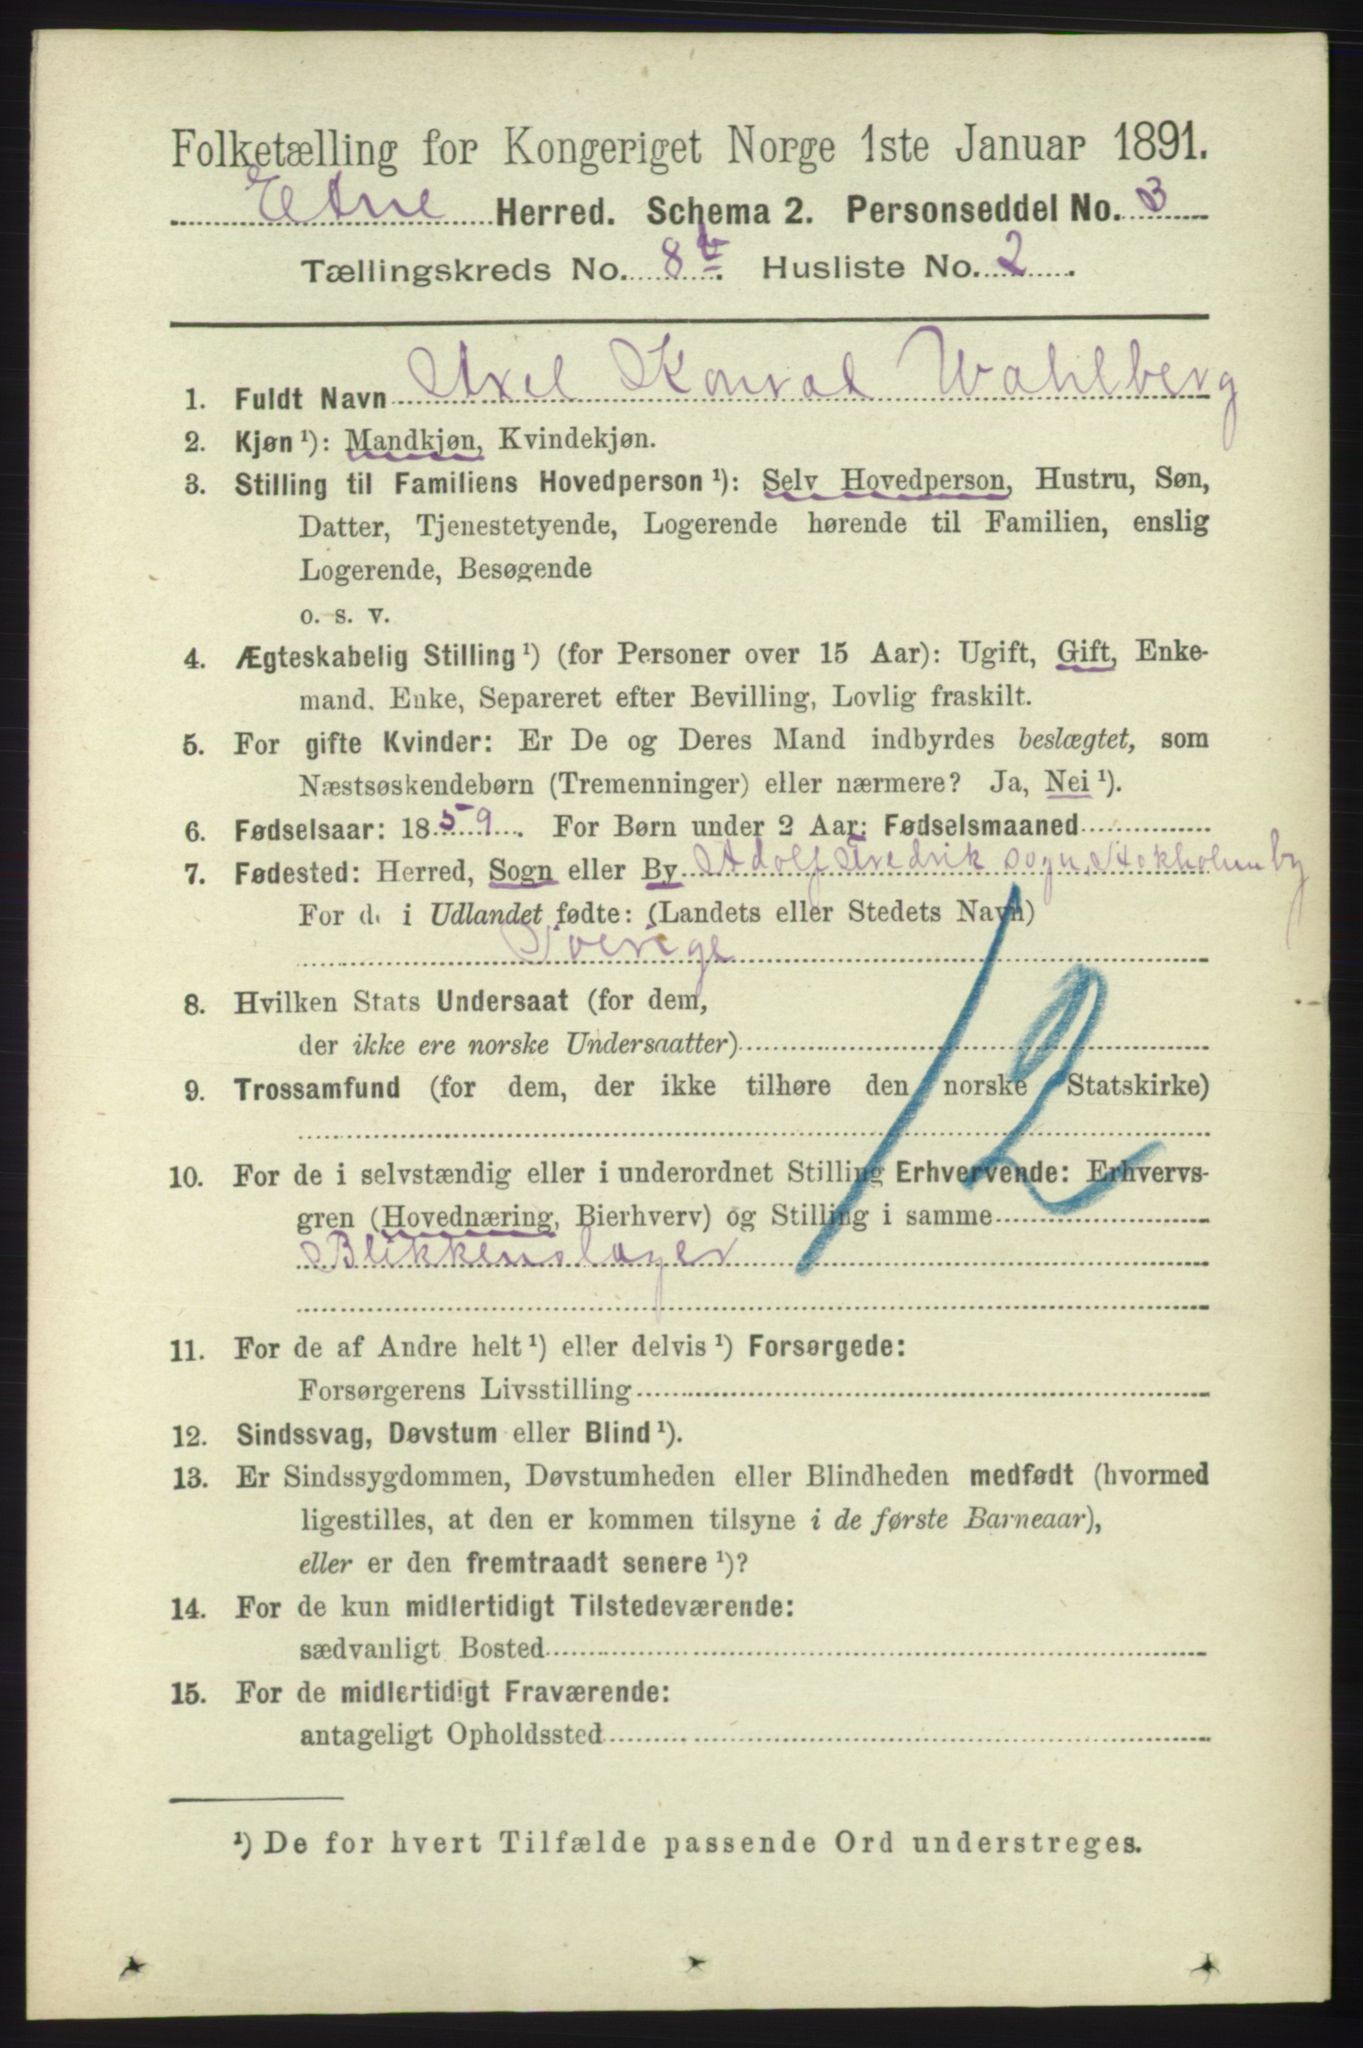 Folketælling for Kongeriget Norge 1ste Januar 1891.
Etne Herred. Schema 2. Personseddel No. 3
Tællingskreds No. 8 b. Husliste No. 2.
1. Fuldt Navn Axel Konrad Wahlberg
2. Kjøn ¹): Mandkjøn, Kvindekjøn.
3. Stilling til Familiens Hovedperson ¹): Selv Hovedperson, Hustru, Søn,
Datter, Tjenestetyende, Logerende hørende til Familien, enslig
Logerende, Besøgende
o. s. v.
4. Ægteskabelig Stilling ¹) (for Personer over 15 Aar): Ugift, Gift, Enke-
mand. Enke, Separeret efter Bevilling, Lovlig fraskilt.
5. For gifte Kvinder: Er De og Deres Mand indbyrdes beslægtet, som
Næstsøskendebørn (Tremenninger) eller nærmere? Ja, Nei ¹).
6. Fødselsaar: 1859. For Børn under 2 Aar: Fødselsmaaned
7. Fødested: Herred, Sogn eller By Adolf Fredrik sogn, Stokholm by
For de i Udlandet fødte: (Landets eller Stedets Navn)
Sverige
8. Hvilken Stats Undersaat (for dem,
der ikke ere norske Undersaatter)
9. Trossamfund (for dem, der ikke tilhøre den norske Statskirke)
12
10. For de i selvstændig eller i underordnet Stilling Erhvervende: Erhvervs-
gren (Hovednæring, Bierhverv) og Stilling i samme
Blikkenslager
11. For de af Andre helt ¹) eller delvis ¹) Forsørgede:
Forsørgerens Livsstilling
12. Sindssvag, Døvstum eller Blind ¹).
13. Er Sindssygdommen, Døvstumheden eller Blindheden medfødt (hvormed
ligestilles, at den er kommen tilsyne i de første Barneaar),
eller er den fremtraadt senere ¹)?
14. For de kun midlertidigt Tilstedeværende:
sædvanligt Bosted
15. For de midlertidigt Fraværende:
antageligt Opholdssted
¹) De for hvert Tilfælde passende Ord understreges.